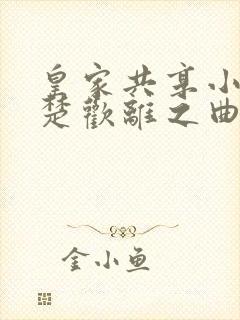 皇家共享小
楚歡離之曲
金小鱼